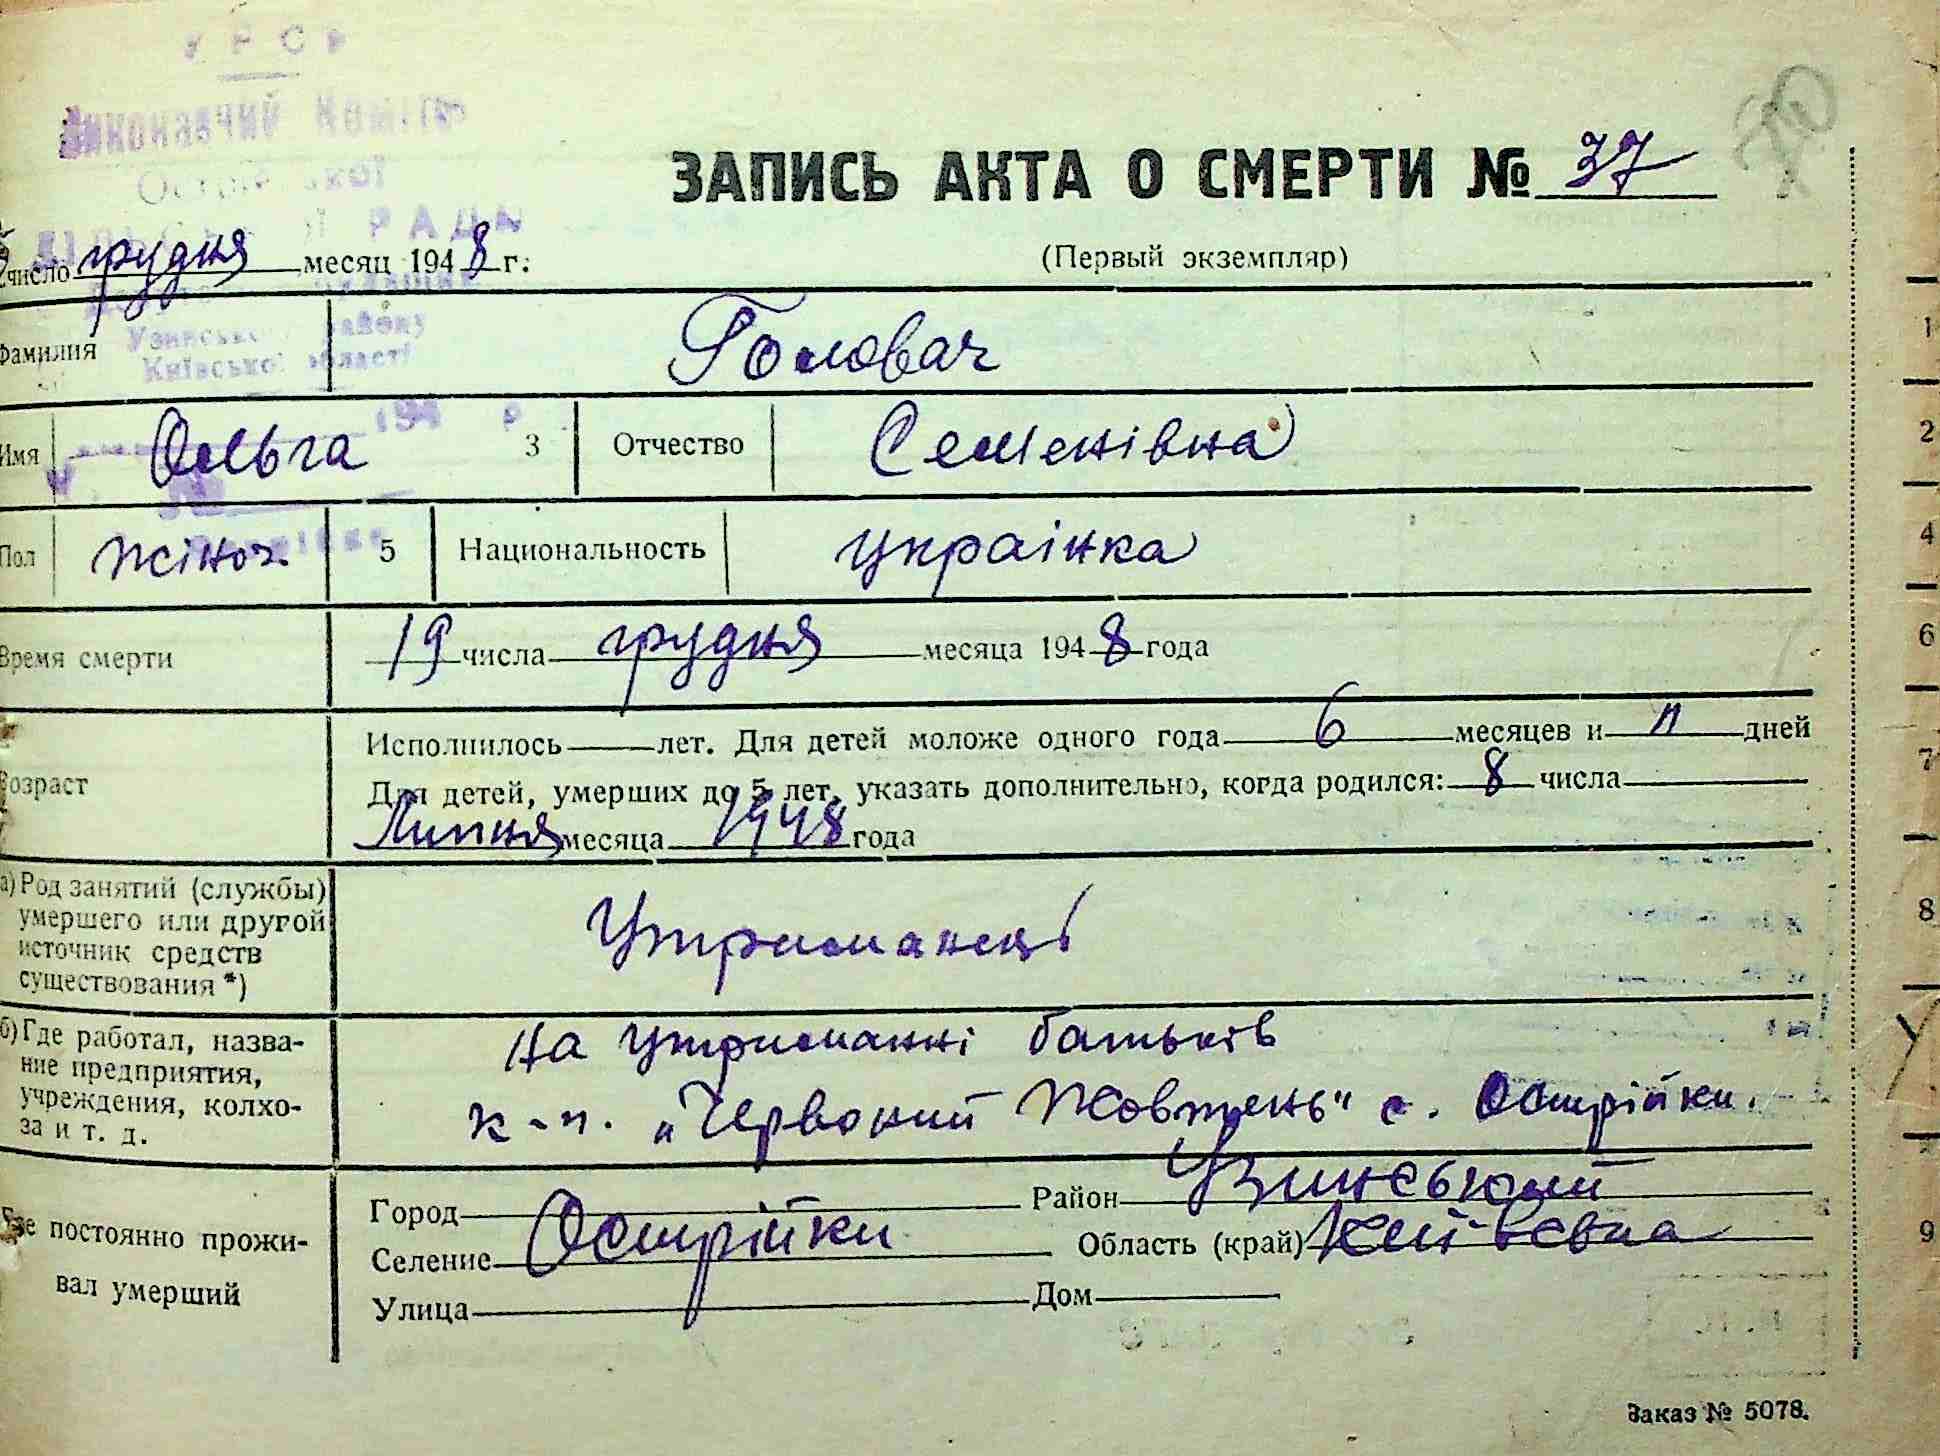 У Р С Р
Виконавчий Комітет
Острійської
СІЛЬСЬКОЇ РАДИ
Депутатів Трудящих
Узинського району
Київської області
194 р
№
70
ЗАПИСЬ АКТА О СМЕРТИ № 37
число грудня месяц 1948 г.
(Первый экземпляр)
Фамилия Головач
1
Имя Ольга 3 Отчество Семенівна
2
Пол жіноч 5 Национальность українка
4
Время смерти 19 числа грудня месяца 1948 года
6
Исполнилось лет. Для детей моложе одного года 6 месяцев и 11 дней
Возраст Для детей, умерших до 5 лет, указать дополнительно, когда родился: 8 числа
7
Липня месяца 1948 года
а) Род занятий (службы)
умершего или другой
источник средств
существования *)
Утриманець
8
б) Где работал, назва-
ние предприятия,
учреждения, колхо-
за и т. д.
на утриманні батьків
к-п. „Червоний Жовтень" с. Острійки.
Где постоянно прожи-
вал умерший
Город Район Узинський
Селение Острійки Область (край) Київська
9
Улица Дом
Заказ № 5078.